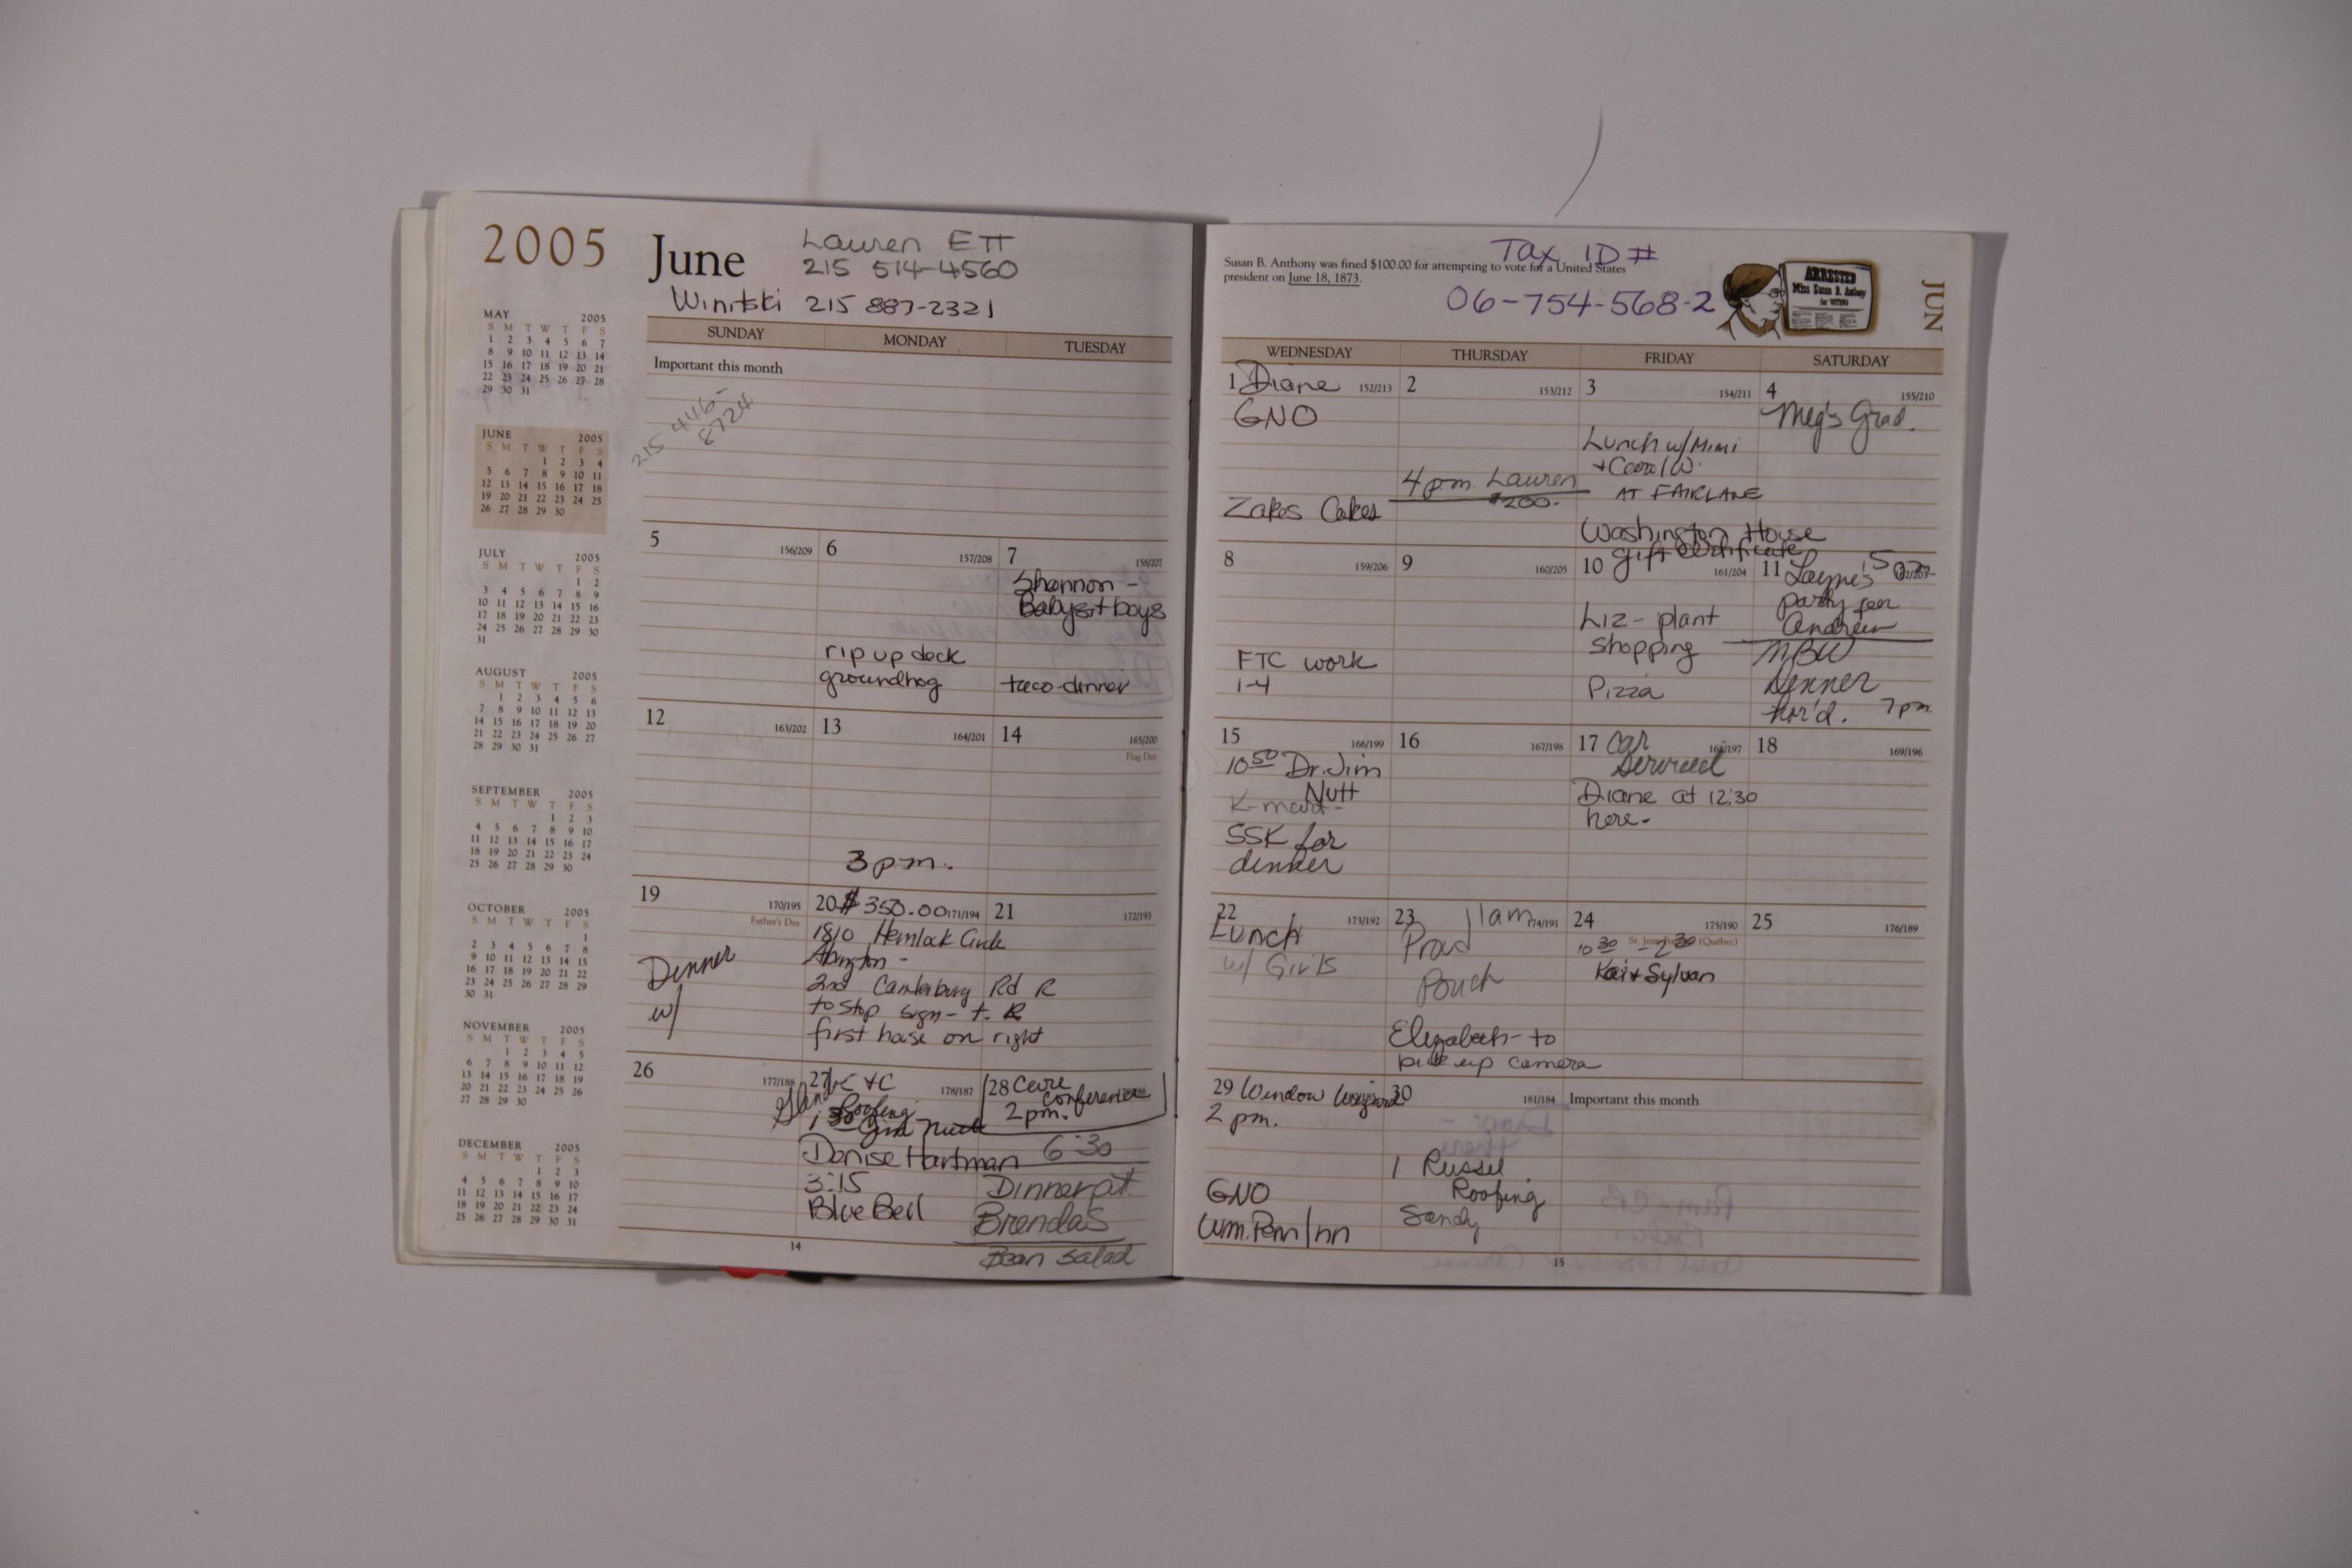 2005
June
Lauren Ett
215 514-4560
Winitski 215 887-2321
MAY 2005
S M T W T F S
1 2 3 4 5 6 7
8 9 10 11 12 13 14
15 16 17 18 19 20 21
22 23 24 25 26 27 28
29 30 31
JUNE 2005
S M T W T F S
1 2 3 4
5 6 7 8 9 10 11
12 13 14 15 16 17 18
19 20 21 22 23 24 25
26 27 28 29 30
JULY 2005
S M T W T F S
1 2
3 4 5 6 7 8 9
10 11 12 13 14 15 16
17 18 19 20 21 22 23
24 25 26 27 28 29 30
31
AUGUST 2005
S M T W T F S
1 2 3 4 5 6
7 8 9 10 11 12 13
14 15 16 17 18 19 20
21 22 23 24 25 26 27
28 29 30 31
SEPTEMBER 2005
S M T W T F S
1 2 3
4 5 6 7 8 9 10
11 12 13 14 15 16 17
18 19 20 21 22 23 24
25 26 27 28 29 30
OCTOBER 2005
S M T W T F S
1
2 3 4 5 6 7 8
9 10 11 12 13 14 15
16 17 18 19 20 21 22
23 24 25 26 27 28 29
30 31
NOVEMBER 2005
S M T W T F S
1 2 3 4 5
6 7 8 9 10 11 12
13 14 15 16 17 18 19
20 21 22 23 24 25 26
27 28 29 30
DECEMBER 2005
S M T W T F S
1 2 3
4 5 6 7 8 9 10
11 12 13 14 15 16 17
18 19 20 21 22 23 24
25 26 27 28 29 30 31
SUNDAY MONDAY TUESDAY
Important this month
215 446-
8724
5 156/209
6 157/208
rip up deck
groundhog
7 158/207
Shannon -
Babysit boys
taco-dinner
12 163/202
13 164/201
3 pm.
14 165/200
Flag Day
19 170/195
Father's Day
Dinner
w/
20 $350.00 171/194
1810 Hemlock Circle
Abington -
2nd Canterbury Rd R
to stop sign - t. R
first house on right
21 172/193
26 177/188
27 K + C 178/187
Roofing
1 30
Denise Hartman
3:15
Blue Bell
28 Care
Conference
2 pm.
6:30
Dinner at
Brenda's
Bean salad
14
Tax ID #
Susan B. Anthony was fined $100.00 for attempting to vote for a United States
president on June 18, 1873.
06-754-568-2
ARRESTED
Miss Susan B. Anthony
for VOTING
JUN
WEDNESDAY THURSDAY FRIDAY SATURDAY
1 Diane 152/213
GNO
Zakes Cakes
2 153/212
4 pm Lauren
$200.
3 154/211
Lunch w/ Mimi
+ Carol W.
AT FAIRLANE
Washington House
gift certificate
4 155/210
Meg's Grad.
8 159/206
FTC work
1-4
9 160/205
10 161/204
Liz - plant
shopping
Pizza
11 Layne's
party for
Andrew
MBW
Dinner
hor'd. 7 pm
15 166/199
10 50 Dr. Jim
Nutt
K-mart -
SSK for
dinner
16 167/198
17 Car
serviced
Diane at 12:30
here.
18 169/196
22 173/192
Lunch
w/ Girls
23 11am 174/191
Prad
Pouch
Elizabeth - to
pick up camera
24 175/190
10 30 - 2 30
Kai + Sylvan
25 176/189
29 Window Wizard
2 pm.
GNO
Wm. Penn Inn
30 181/184
1 Russel
Roofing
Sandy
Important this month
15